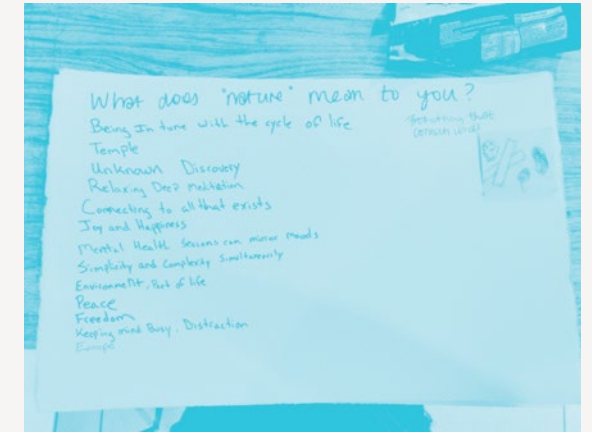 What does "nature" mean to you?
Being In tune with the cycle of life
Temple
Unknown Discovery
Relaxing Deep Meditation
Connecting to all that exists
Joy and Happiness
Mental Health Seasons can mirror moods
Simplicity and Complexity Simultaneously
Environment, Part of life
Peace
Freedom
Keeping mind Busy. Distraction
Europe
that